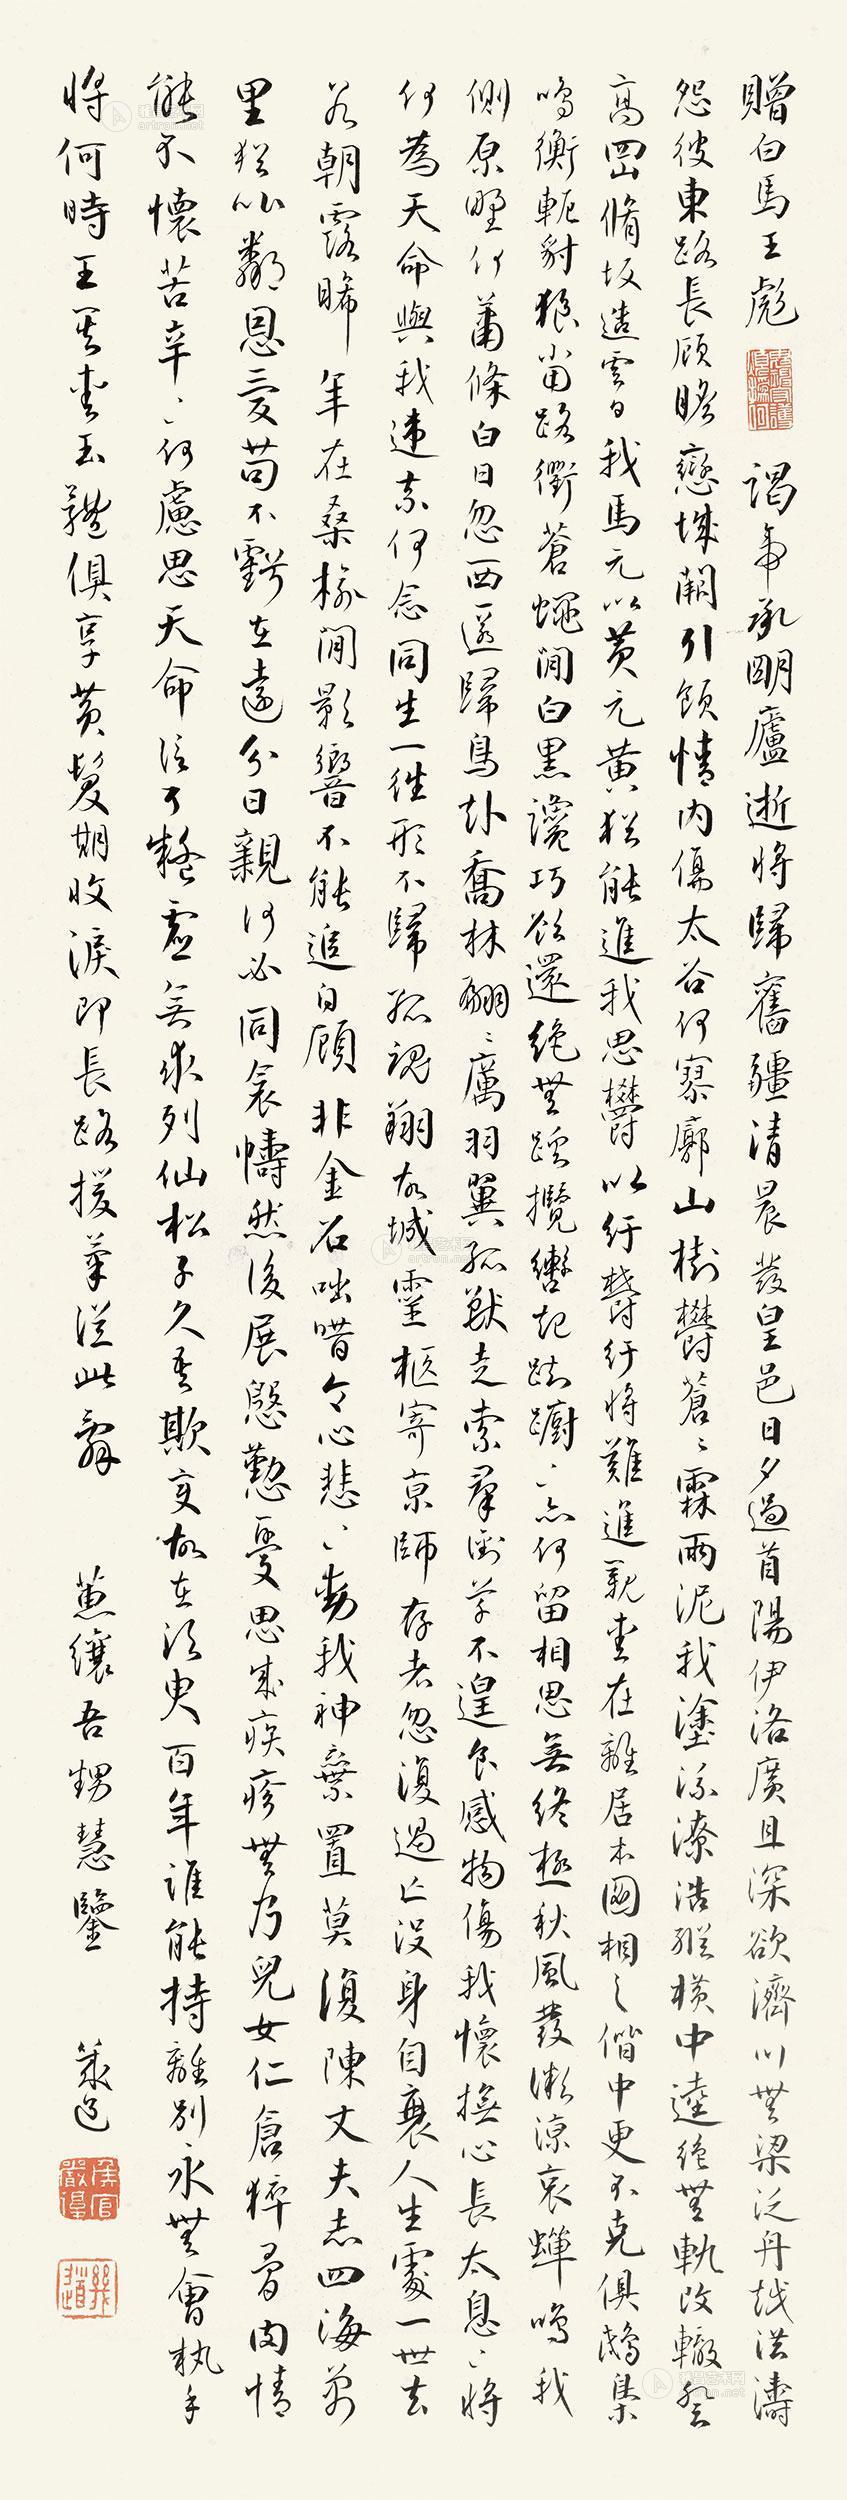 贈白馬王彪 謁帝承明廬逝將歸舊疆清晨發皇邑日夕過首陽伊洛廣且深欲濟川無梁泛舟越洪濤
怨彼東路長顧瞻戀城闕引領情內傷太谷何寥廓山樹鬱蒼々霖雨泥我塗流潦浩縱橫中逵絕無軌改轍登
高岡脩坂造雲日我馬元以黃元黃猶能進我思鬱以紆鬱紆將難進親愛在離居本圖相與偕中更不克俱鴟梟
鳴衡軛豺狼當路衢蒼蠅間白黑讒巧欲還絕無蹊攬轡起踟躕々亦何留相思無終極秋風發微涼寒蟬鳴我
側原野何蕭條白日忽西匿歸鳥赴喬林翩々厲羽翼孤獸走索羣銜草不遑食感物傷我懷撫心長太息々將
何為天命與我違奈何念同生一往形不歸孤魂翔故城靈柩寄京師存者忽復過亡沒身自衰人生處一世去
若朝露晞年在桑榆間影響不能追自顧非金石咄唶令心悲々動我神棄置莫復陳丈夫志四海萬
里猶比鄰恩愛苟不虧在遠分日親何必同衾幬然後展慇懃憂思成疾疹無乃兒女仁倉猝骨肉情
能不懷苦辛々何慮思天命信可疑虛無求列仙松子久吾欺變故在須臾百年誰能持離別永無會執手
將何時王其愛玉體俱享黃髮期收淚即長路援筆從此辭 蕙纕吾甥慧鑒 幾道
侯官嚴復
幾道